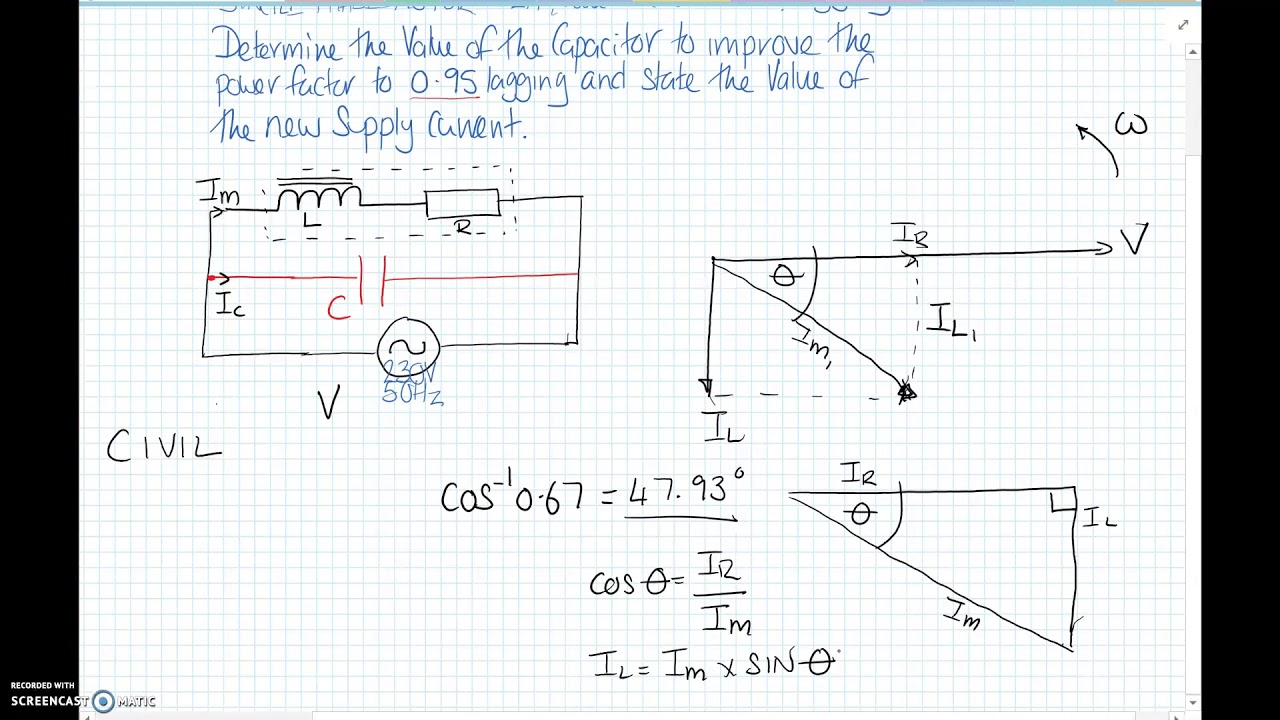 Determine the Value of the Capacitor to improve the
power factor to 0.95 lagging and state the Value of
the new Supply Current.
ω
Im
L
R
IR
V
θ
Ic
C
IL1
Im1
230V
50Hz
V
IL
CIVIL
cos⁻¹0.67 = 47.93°
IR
θ
IL
Im
cos θ = IR
Im
IL = Im x SIN θ
RECORDED WITH
SCREENCAST MATIC